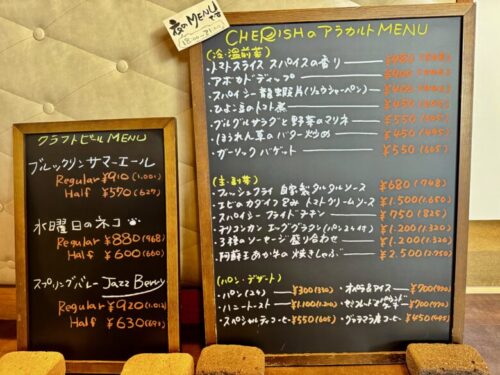 夜のMENU です
18:00〜
クラフトビールMENU
ブルックリンサマーエール
Regular ¥910 (1,001)
Half ¥570 (627)
水曜日のネコ
Regular ¥880 (968)
Half ¥600 (660)
スプリングバレー Jazz Berry
Regular ¥920 (1,012)
Half ¥630 (693)
CHERISHのアラカルトMENU
(冷・温前菜)
・トマトスライス スパイスの香り
・アボカドディップ
・スパイシー龍蝦片(リュウシャーペン)
・ひよこ豆のトマト煮
・グルグルサラダと野菜のマリネ ¥550 (605)
・ほうれん草のバター炒め ¥450 (495)
・ガーリックバゲット ¥550 (605)
(主・副菜)
・フィッシュフライ 自家製タルタルソース ¥680 (748)
・エビのカダイフ包み トマトクリームソース ¥1,500 (1,650)
・スパイシーフライドチキン ¥750 (825)
・チリコンカン エッググラタン(パン2ヶ付) ¥1,200 (1,320)
・3種のソーセージ盛り合わせ ¥1,200 (1,320)
・阿蘇王 あか牛の焼きしゃぶ ¥2,500 (2,750)
(パン・デザート)
・パン(2ヶ) ¥300 (330) ・オペラ&アイス ¥700 (770)
・ハニートースト ¥1,100 (1,210) ¥700 (770)
・スペシャルティコーヒー ¥550 (605) ・グァテマラ産コーヒー ¥450 (495)